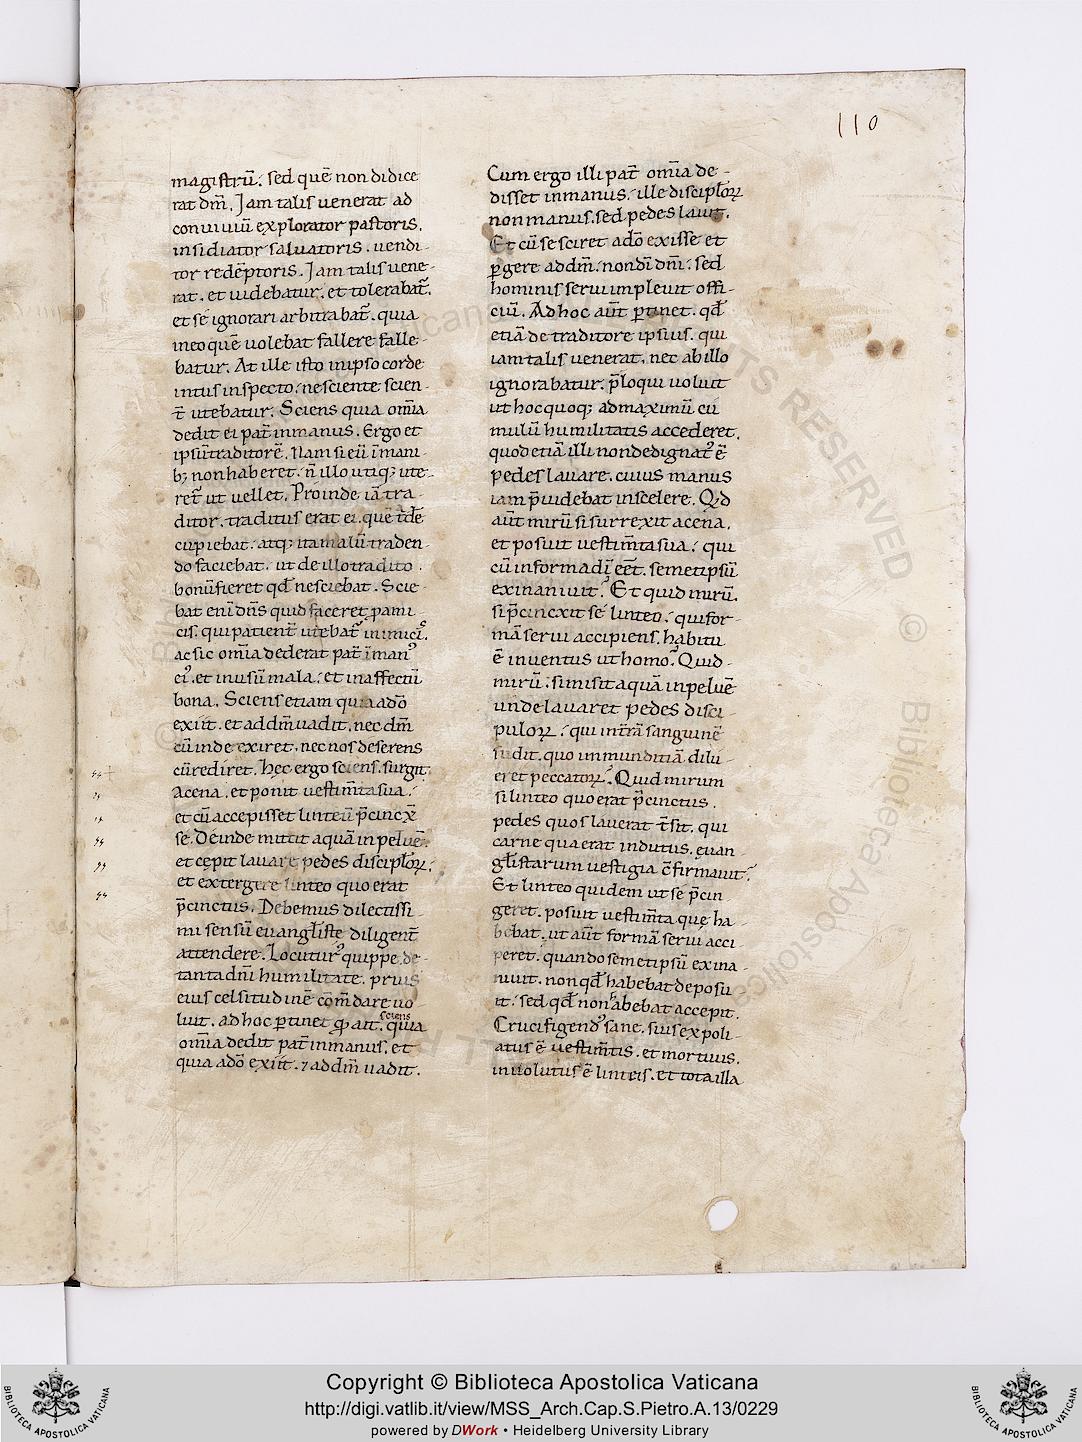 110
magistrũ. sed quẽ non didice
rat dm̃. Jam talis uenerat ad
conuiuiũ explorator pastoris.
insidiator saluatoris. uendi-
tor redẽptoris. Jam talis uene-
rat. et uidebatur. et tolerabat᷑.
et se ignorari arbitrabat᷑. quia
ineo quẽ uolebat fallere falle-
batur. At ille isto inipso corde
intus inspecto. nesciente scien-
t̃ utebatur. Sciens quia om̃ia
dedit ei pat̃ inmanus. Ergo et
ipsũ traditorẽ. Nam si eũ ĩmani-
b; nonhaberet. ñ illo utiq; ute-
ret᷑ ut uellet. Proinde iã tra-
ditor. traditus erat ei. quẽ
cupiebat. atq; ita malũ traden-
do faciebat. ut de illo tradito.
bonũ fieret qđ nesciebat. Scie-
bat eni dñs quid faceret pami-
cis. qui patient̃ utebat᷑ inimici᷒.
ac sic om̃ia dederat pat̃ ĩman᷒
ei᷒. et inusũ mala. et inaffectũ
bona. Sciens etiam quia adõ
exiit. et addm̃ uadit. nec dm̃
cũ inde exiret. nec nos deserens
cũ rediret. hęc ergo sciens. surgit
acena. et ponit uestim̃ta sua.
et cũ accepisset linteũ p̃cinc
se. Deinde mittit aquã in peluẽ.
et cepit lauare pedes discipl̃oꝝ.
et extergere linteo quo erat
p̃cinctus. Debemus dilectissi-
mi sensũ euangl̃istę diligent̃
attendere. Locutur᷒ quippe de-
tanta dm̃i humilitate. prius
eius celsitudinẽ cõm̃dare uo-
luit. adhoc ꝑtinet ꝙ ait. sciens quia
om̃ia dedit pat̃ inmanus. et
quia adõ exiit. ⁊ addm̃ uadit.
Cum ergo illi pat̃ om̃ia de-
disset inmanus. ille discipl̃oꝝ
non manus. sed pedes lauit.
Et cũ se sciret adõ exisse et
ꝑgere addm̃. nondĩ dm̃. sed
hominis serui impleuit offi-
ciũ. Adhoc aũt ꝑtinet. qđ
etiã de traditore ipsius. qui
iam talis uenerat. nec ab illo
ignorabatur. p̃loqui uoluit
ut hoc quoq; admaximũ cu
mulũ humilitatis accederet.
quod etiã illi nondedignat᷒ ẽ
pedes lauare. cuius manus
iam p̃uidebat inscelere. Qd
aũt mirũ si surrexit acena.
et posuit uestim̃ta sua. qui
cũ informa dĩ eẽt. semetipsũ
exinaniuit. Et quid mirũ.
si p̃cincxit se linteo. qui for-
mã serui accipiens. habitu
ẽ inuentus ut homo. Quid-
mirũ. si misit aquã inpeluẽ
unde lauaret pedes disci-
puloꝝ. qui int̃rã sanguinẽ
fudit. quo inmunditiã dilu-
eret peccatoꝝ. Quid mirum
si linteo quo erat p̃cinctus.
pedes quos lauerat t̃sit. qui
carne qua erat indutus. euan-
gl̃istarum uestigia c̃firmauit.
Et linteo quidem ut se p̃cin
geret. posuit uestim̃ta quę ha
bebat. ut aũt formã serui acci-
peret. quando semetipsũ exina-
niuit. non qđ habebat deposu
it. sed qđ nonhabebat accepit.
Crucifigend᷒ sane. suis expoli-
atus ẽ uestim̃tis. et mortuus.
inuolutus ẽ linteis. et tota illa
Copyright © Biblioteca Apostolica Vaticana
http://digi.vatlib.it/view/MSS_Arch.Cap.S.Pietro.A.13/0229
powered by DWork • Heidelberg University Library
BIBLIOTECA APOSTOLICA VATICANA
BIBLIOTECA APOSTOLICA VATICANA